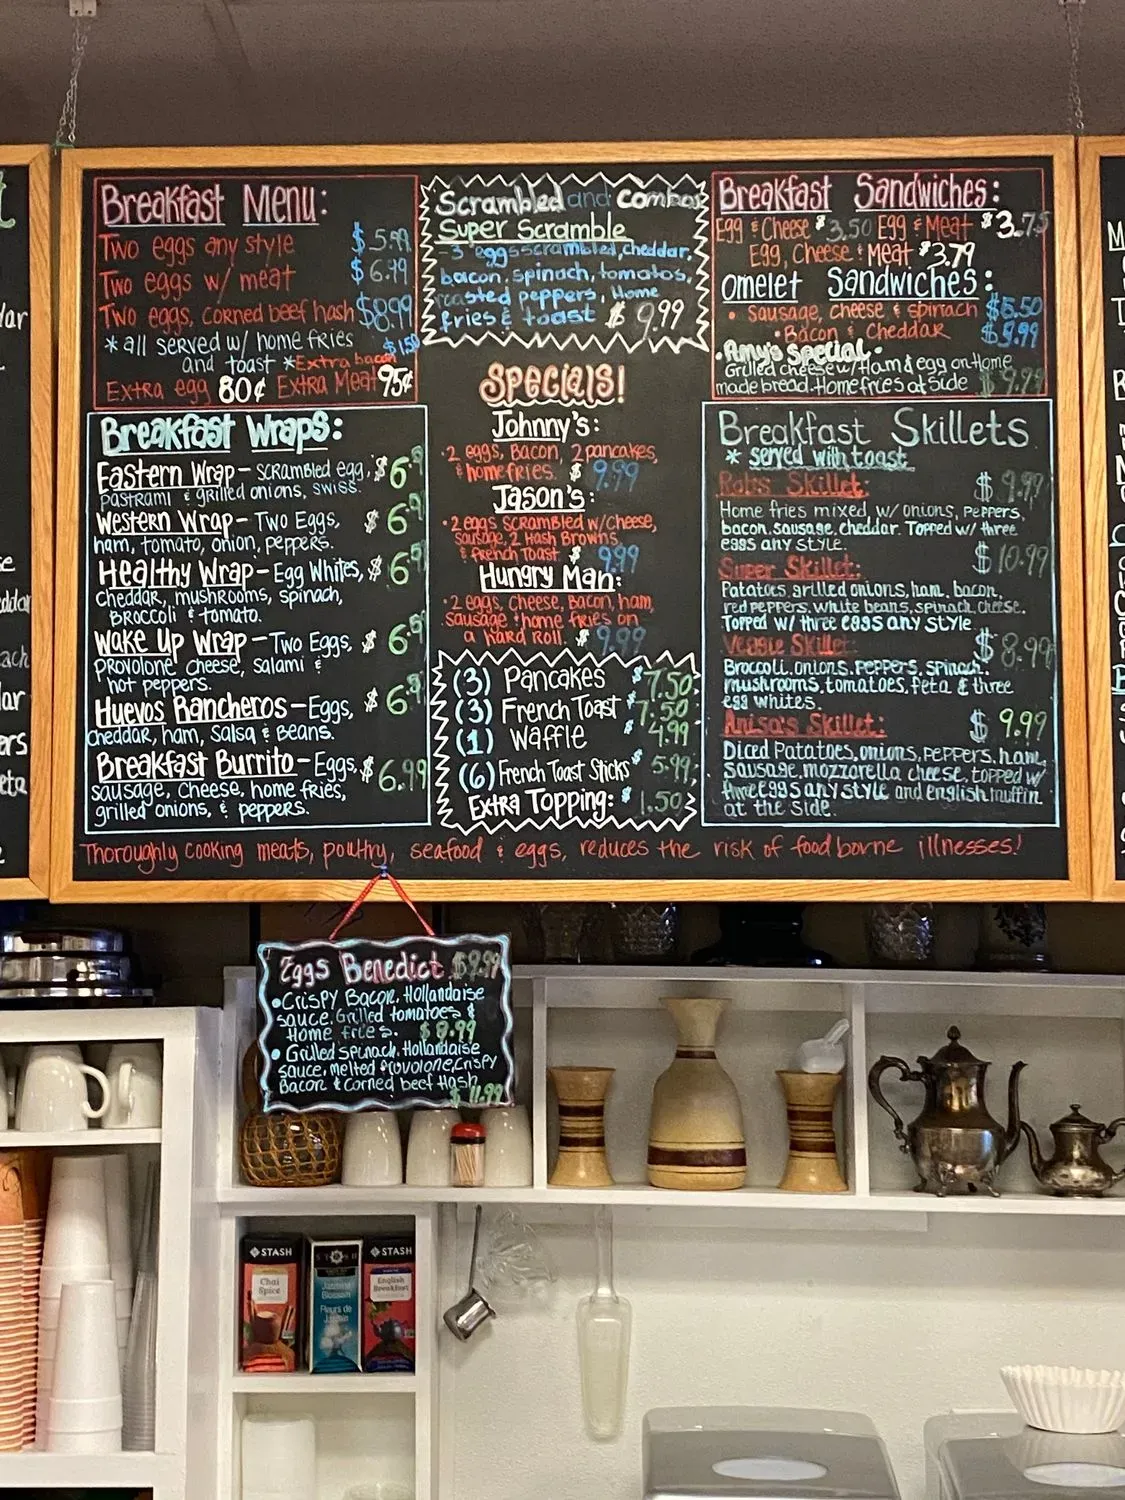 Breakfast Menu:
Two eggs any style $5.99
Two eggs w/ meat $6.49
Two eggs, corned beef hash $8.99
* all served w/ home fries
and toast *Extra bacon $1.50
Extra egg 80¢ Extra Meat 95¢
Breakfast Wraps:
Eastern Wrap - scrambled egg, $6.9
pastrami & grilled onions, swiss.
Western Wrap - Two Eggs, $6.9
ham, tomato, onion, peppers.
Healthy Wrap - Egg Whites, $6.9
cheddar, mushrooms, spinach,
Broccoli & tomato.
Wake Up Wrap - Two Eggs, $6.9
provolone cheese, salami &
hot peppers.
Huevos Rancheros - Eggs, $6.9
cheddar, ham, salsa & beans.
Breakfast Burrito - Eggs, $6.99
sausage, cheese, home fries,
grilled onions, & peppers.
Scrambled and combos
Super Scramble
- 3 eggs scrambled, cheddar,
bacon, spinach, tomatos,
roasted peppers, Home
fries & toast $9.99
Specials!
Johnny's:
· 2 eggs, Bacon, 2 pancakes,
& home fries. $9.99
Jason's:
· 2 eggs scrambled w/cheese,
sausage, 2 Hash Browns
& french Toast $9.99
Hungry Man:
· 2 eggs, cheese, Bacon, ham,
sausage & home fries on
a hard Roll. $9.99
(3) Pancakes $7.50
(3) French Toast $7.50
(1) Waffle $4.99
(6) French Toast Sticks $5.99
Extra Topping: $1.50
Breakfast Sandwiches:
Egg & Cheese $3.50 Egg & Meat $3.75
Egg, Cheese & Meat $3.79
Omelet Sandwiches:
• Sausage, cheese & spinach $5.50
• Bacon & Cheddar $5.99
• Amy's Special •
Grilled cheese w/ Ham & egg on Home
made bread. Home fries at side $9.99
Breakfast Skillets
* served with toast
Robs Skillet: $9.99
Home fries mixed, w/ onions, peppers,
bacon, sausage, cheddar. Topped w/ three
eggs any style.
Super Skillet: $10.99
Patatoes, grilled onions, ham, bacon,
red peppers, white beans, spinach, cheese.
Topped w/ three eggs any style.
Veggie Skillet: $8.99
Broccoli, onions, peppers, spinach,
mushrooms, tomatoes, feta & three
egg whites.
Anisa's Skillet: $9.99
Diced Patatoes, onions, peppers, ham,
sausage, mozzarella cheese, topped w/
three eggs any style and english muffin
at the side.
Thoroughly cooking meats, poultry, seafood & eggs, reduces the risk of food borne illnesses!
Eggs Benedict $9.99
• Crispy Bacon, Hollandaise
sauce, Grilled tomatoes &
Home fries. $9.99
• Grilled spinach, Hollandaise
sauce, melted provolone, crispy
Bacon & Corned beef Hash
$11.99
STASH
Chai
Spice
STASH
Jasmine
Blossom
Fleurs de
Jasmin
STASH
English
Breakfast